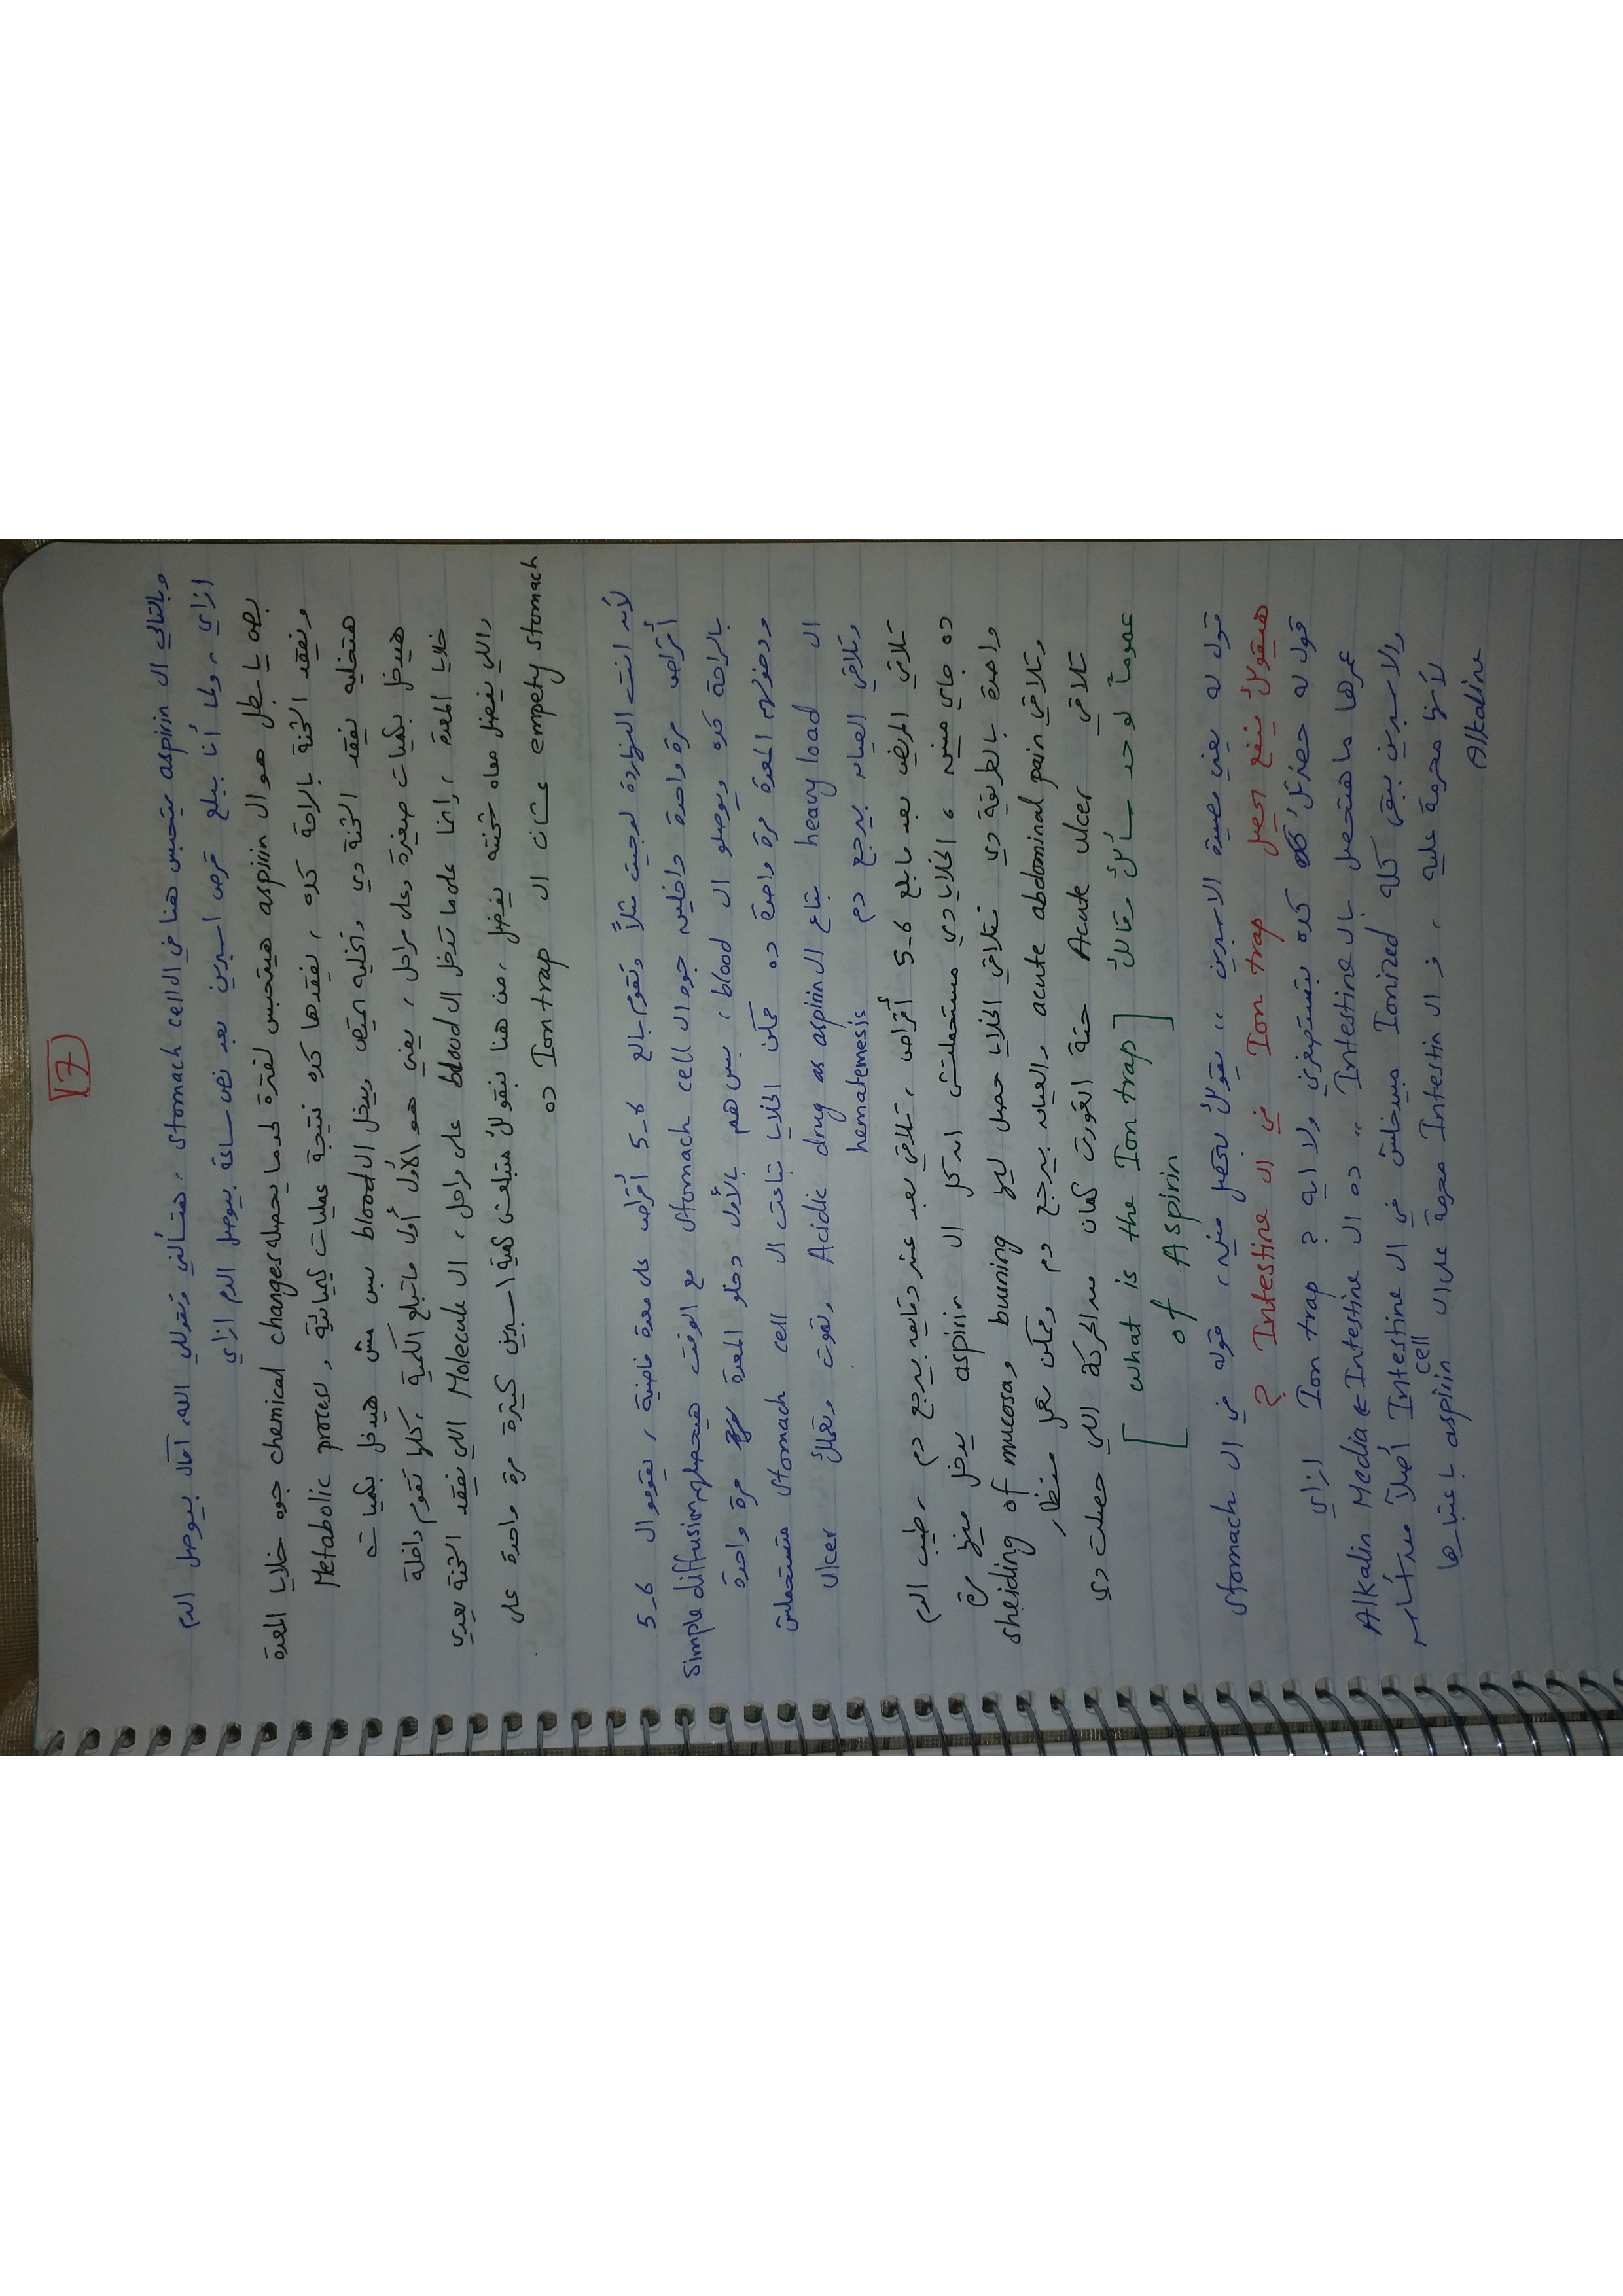 [7]
وبالتالي ال aspirin يتحبس هنا في ال stomach cell ، هتسألني وتقولي الله امال بيوصل الدم
ازاي ، ولما أنا ببلع قرص اسبرين بعد نص ساعة بيوصل الدم ازاي
بص يا بطل هو ال aspirin هيتحبس لفترة لحد ما يحصله chemical changes جوه خلايا المعدة
ويفقد الشحنة بالراحة كده ، يفقدها كده نتيجة عمليات كيميائية ، Metabolic process
هتخليه يفقد الشحنة دي وتخليه يمتص ويدخل ال blood بس مش هيدخل بكميات
هيدخل بكميات صغيرة وعلى مراحل ، يعني هو الأول أول ما تبلع الكمية ، كلها تقوم داخلة
خلايا المعدة ، وانما على ما تدخل ال blood على مراحل ، ال Molecule اللي يفقد الشحنة يعدي
واللي يفضل معاه شحنته يفضل ، من هنا بنقولك متبلعش كمية اسبرين كبيرة مرة واحدة على
empety stomach عشان ال Ion trap ده
لأنه انت النهاردة لو جيت مثلاً وتقوم بالع 5-6 أقراص على معدة فاضية ، يقوموا ال 5-6
أقراص مرة واحدة داخلين جوه ال stomach cell مع الوقت هيحصلهم simple diffusion
بالراحة كده ويوصلو ال blood ، بس هم بالأول دخلو المعدة مرة واحدة
ودخولهم المعدة مرة واحدة ده ممكن الخلايا بتاعت ال stomach cell متستحملش
ال heavy load بتاع ال Acidic drug as aspirin وتموت وتعملك ulcer
وتلاقي العيان بيرجع دم hematemesis
تلاقي المريض بعد ما بلع 5-6 أقراص ، تلاقي بعد عشر دقايق بيرجع دم ، طيب الدم
ده جاي منين ، الخلايا دي مستحملتش ان كل ال aspirin يدخل فيها مرة
واحدة بالطريقة دي فتلاقي الخلايا حصل ليها burning و sheiding of mucosa
وتلاقي acute abdominal pain والعيان بيرجع دم وممكن نعمل منظار
تلاقي Acute ulcer حتة اتعورت كمان من الحركة اللي حصلت دي
عموماً لو حد سألك وقالك [what is the Ion trap
of Aspirin]
قول له يعني مصيدة الاسبرين ،، يقولك بتحصل فين ، قوله في ال stomach
هيقولك ينفع يحصل Ion trap في ال Intestine ?
قول له حضرتك كده بتستهبلني ولا ايه ? Ion trap ازاي
عمرها ما هتحصل بال Intestine ،، ده ال Intestine ← Alkalin Media
والاسبرين يبقى كله Ionized مبيدخلش في ال Intestine أصلاً
لأنها محرمة عليه ، فـ ال Intestin cell محرمة على ال aspirin باعتبارها
Alkaline